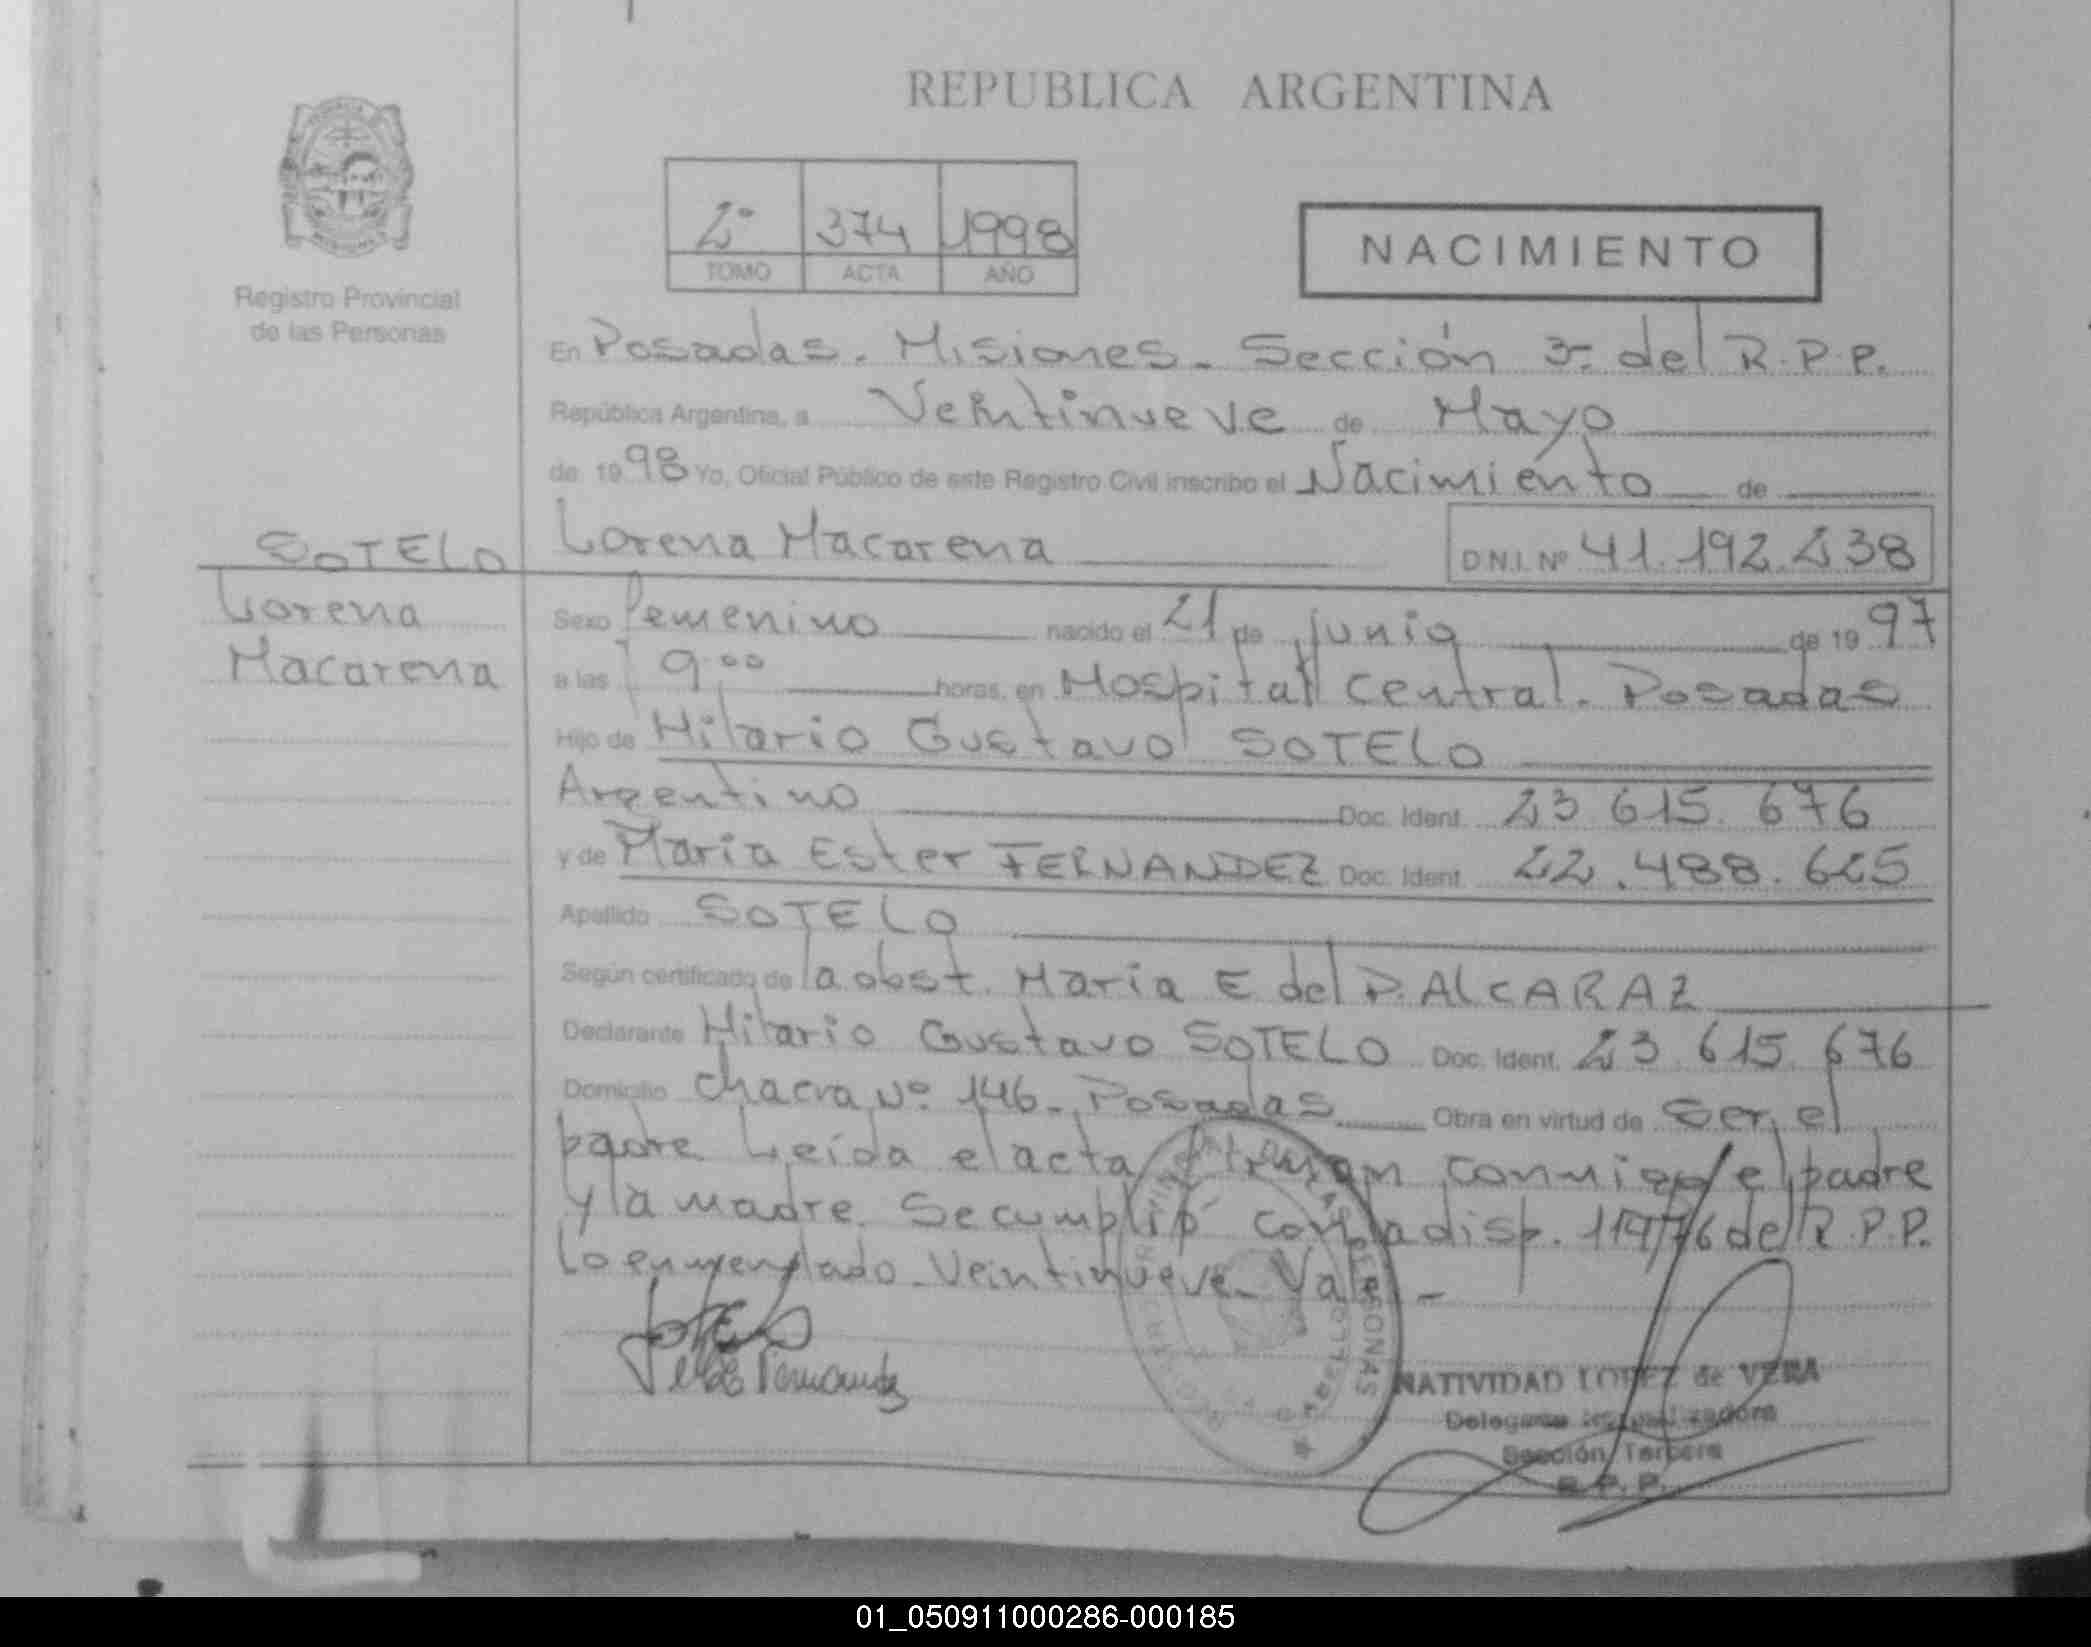 REPUBLICA ARGENTINA
Registro Provincial
de las Personas
2º 374 1998
TOMO ACTA AÑO
NACIMIENTO
En Posadas. Misiones. Sección 3ª del R.P.P.
República Argentina, a Veintinueve de Mayo
de 1998 Yo, Oficial Público de este Registro Civil inscribo el Nacimiento de
SOTELO
Lorena Macarena
Lorena Macarena D.N.I. Nº 41.192.238
Sexo femenino nacido el 21 de junio de 1997
a las 9.00 horas, en Hospital Central. Posadas
Hijo de Hilario Gustavo SOTELO
Argentino Doc. Ident. 23.615.676
y de Maria Ester FERNANDEZ Doc. Ident. 22.488.625
Apellido SOTELO
Según certificado de la obst. Maria E del P. ALCARAZ
Declarante Hilario Gustavo SOTELO Doc. Ident. 23.615.676
Domicilio chacra Nº 146. Posadas Obra en virtud de ser el
padre Leída el acta firman conmigo el padre
y la madre. Se cumplió con la disp. /76 del R.P.P.
Lo enmendado. Veintinueve. Vale.-
Sotelo
Fernandez
NATIVIDAD LOPEZ de VERA
Sección Tercera
R.P.P.
01_050911000286-000185